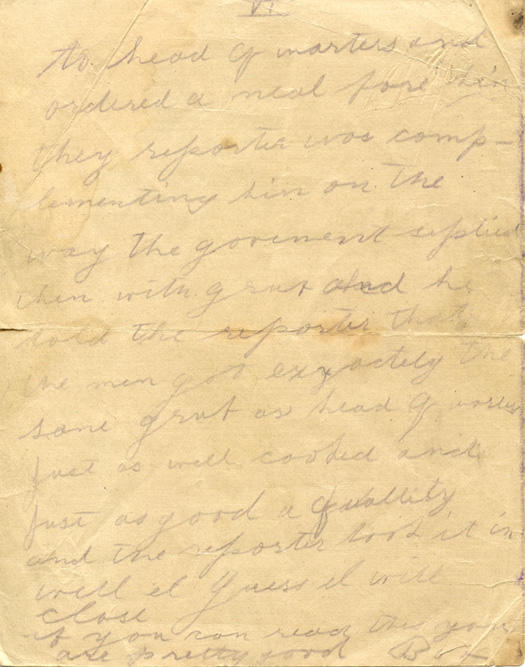 VI
to head q uarters and
ordered a meal fore him
they reporter was comp-
lementing him on the
way the goverment suplied
them with grub and he
told the reporter that
the men got exactely the
same grub as head q uarters
just as well cooked and
just as good a quallity
and the reporter took it in
well il guess il will
close
if you can read this you
are pretty good